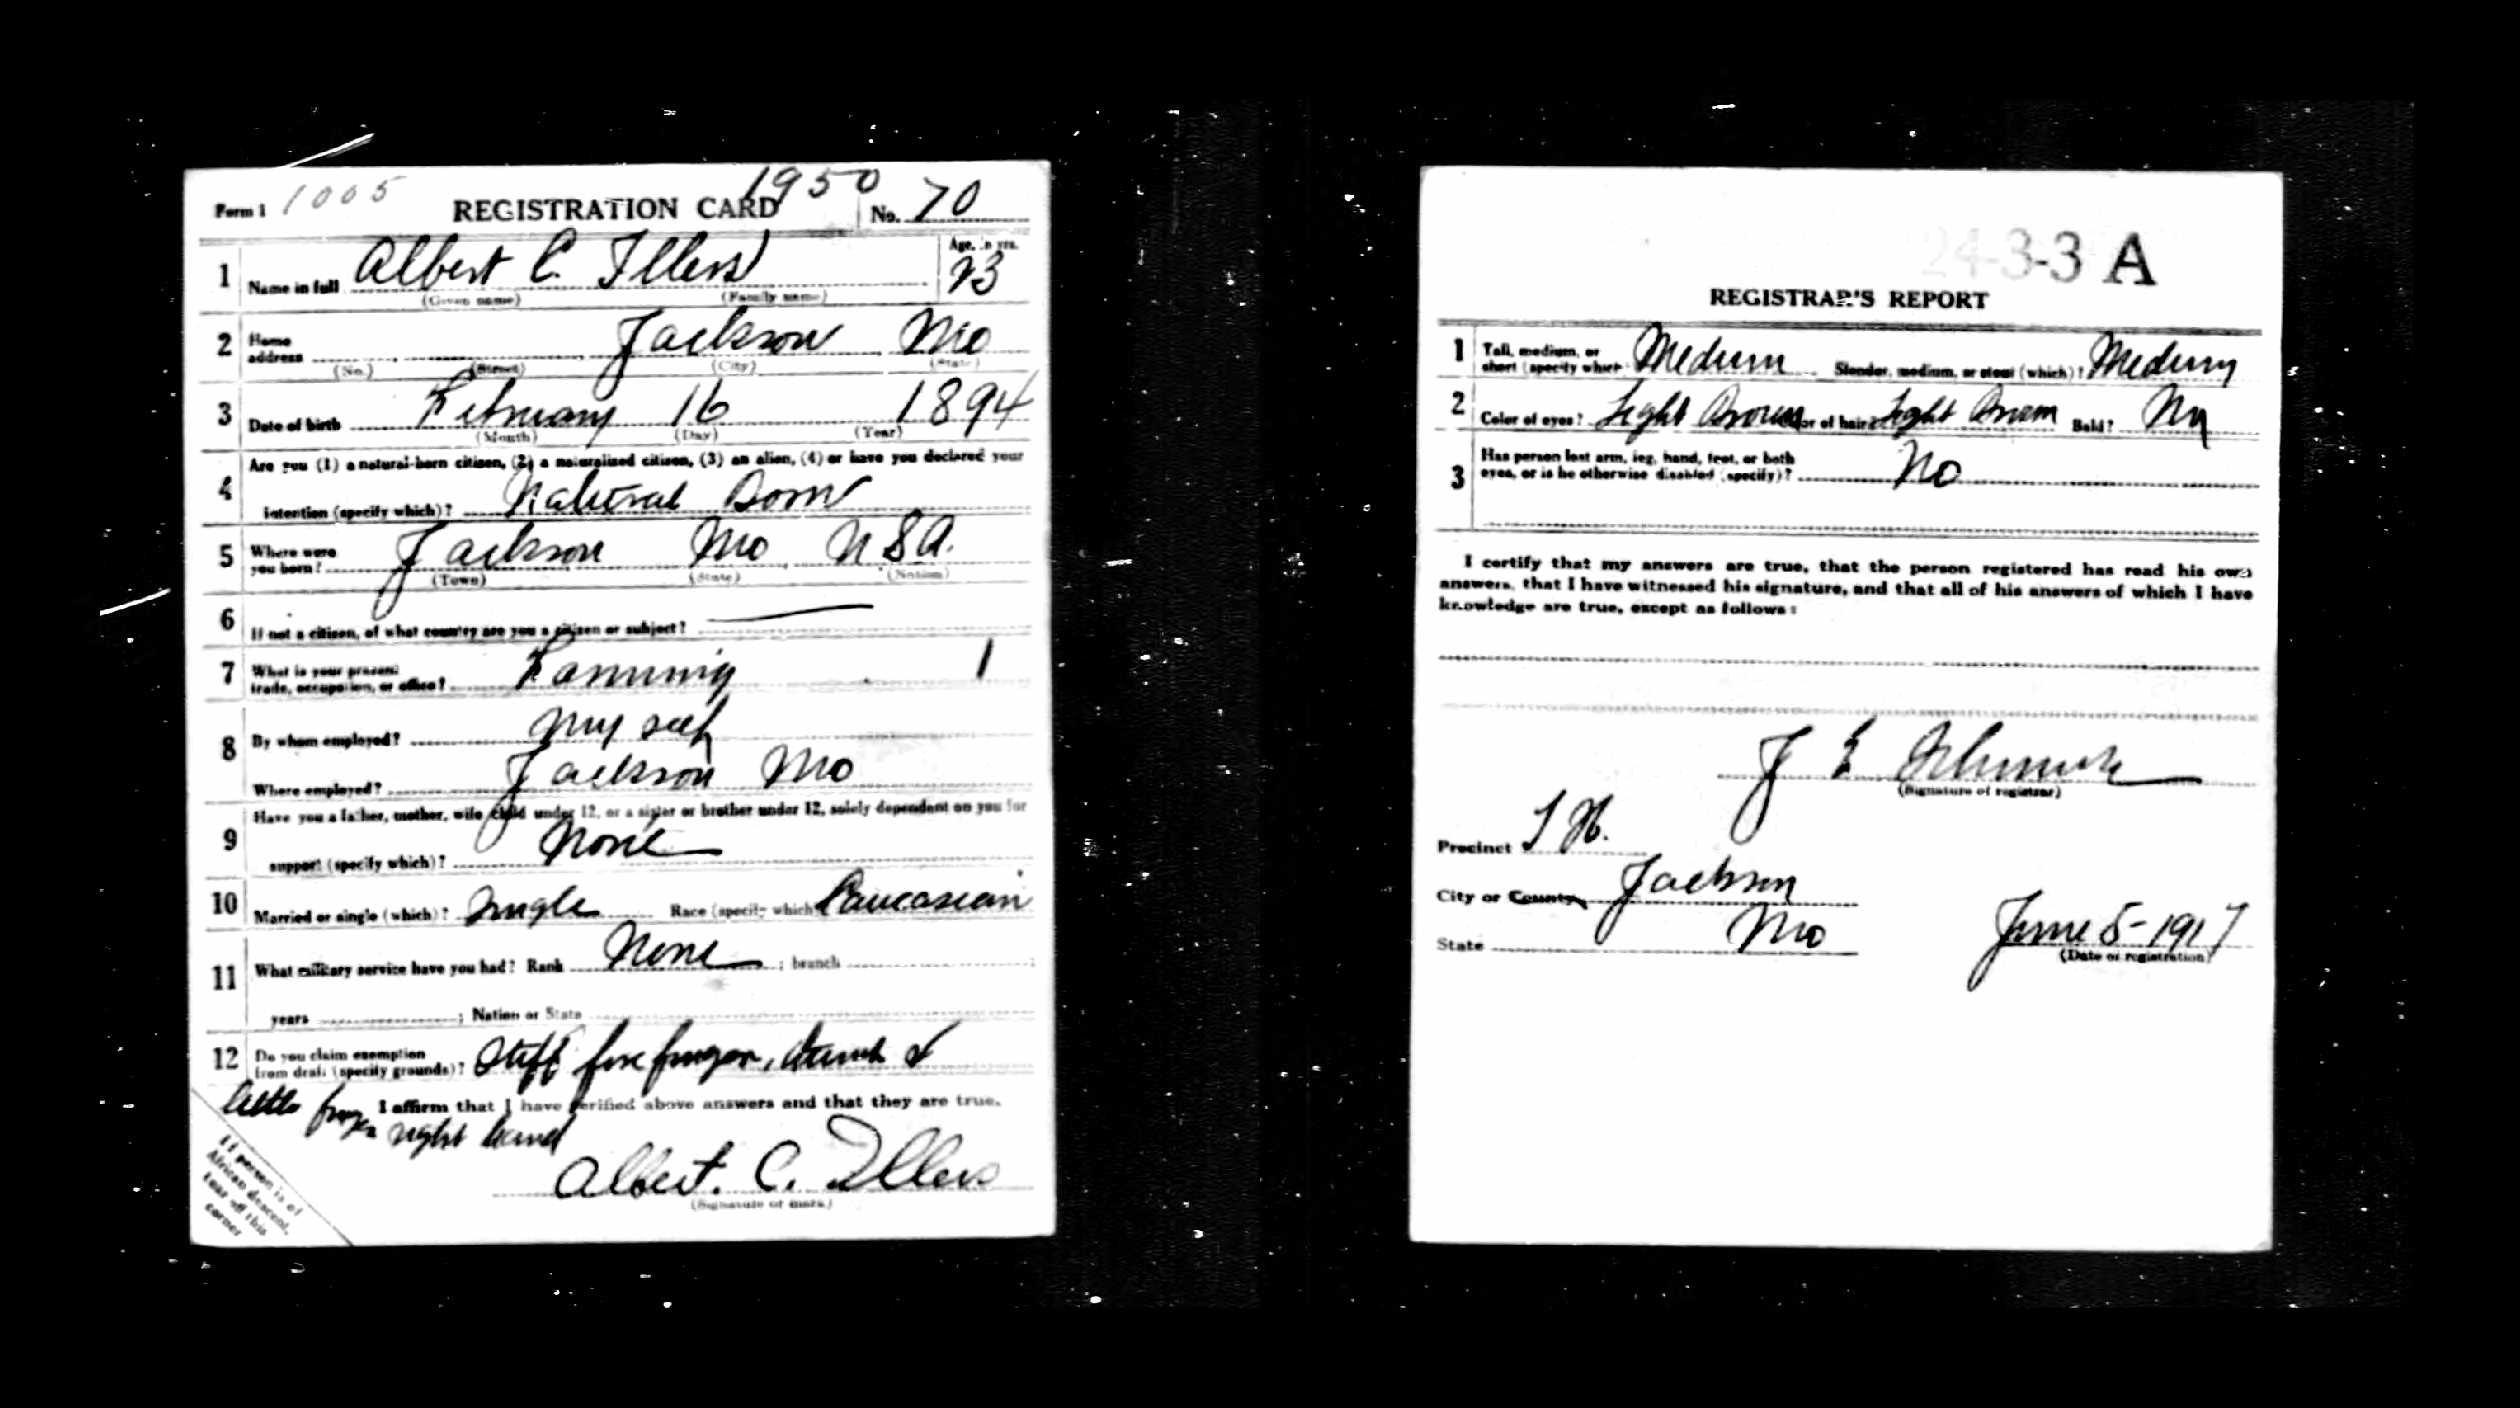 Form 1 1005 REGISTRATION CARD 1950 No. 70
1 Name in full Albert C. Illers Age, in yrs. 23
(Given name) (Family name)
2 Home address Jackson Mo
(No.) (Street) (City) (State)
3 Date of birth February 16 1894
(Month) (Day) (Year)
4 Are you (1) a natural-born citizen, (2) a naturalized citizen, (3) an alien, (4) or have you declared your
intention (specify which)? Natural Born
5 Where were you born? Jackson Mo USA.
(Town) (State) (Nation)
6 If not a citizen, of what country are you a citizen or subject?
7 What is your present trade, occupation, or office? Farming 1
8 By whom employed? My self
Where employed? Jackson Mo
9 Have you a father, mother, wife child under 12, or a sister or brother under 12, solely dependent on you for
support (specify which)? None
10 Married or single (which)? Single Race (specify which) Caucasian
11 What military service have you had? Rank None ; branch ;
years ; Nation or State
12 Do you claim exemption from draft (specify grounds)? Stiff fore finger, &
little finger right hand
I affirm that I have verified above answers and that they are true.
Albert. C. Illers
(Signature or mark)
If person is of
African descent,
tear off this
corner
24-3-3 A
REGISTRAR'S REPORT
1 Tall, medium, or short (specify which) Medium Slender, medium, or stout (which)? Medium
2 Color of eyes? Light Brown Color of hair? Light Brown Bald? No
3 Has person lost arm, leg, hand, foot, or both
eyes, or is he otherwise disabled (specify)? No
I certify that my answers are true, that the person registered has read his own
answers, that I have witnessed his signature, and that all of his answers of which I have
knowledge are true, except as follows:
J E
(Signature of registrar)
Precinct
City or County Jackson
State Mo June 5-1917
(Date of registration)